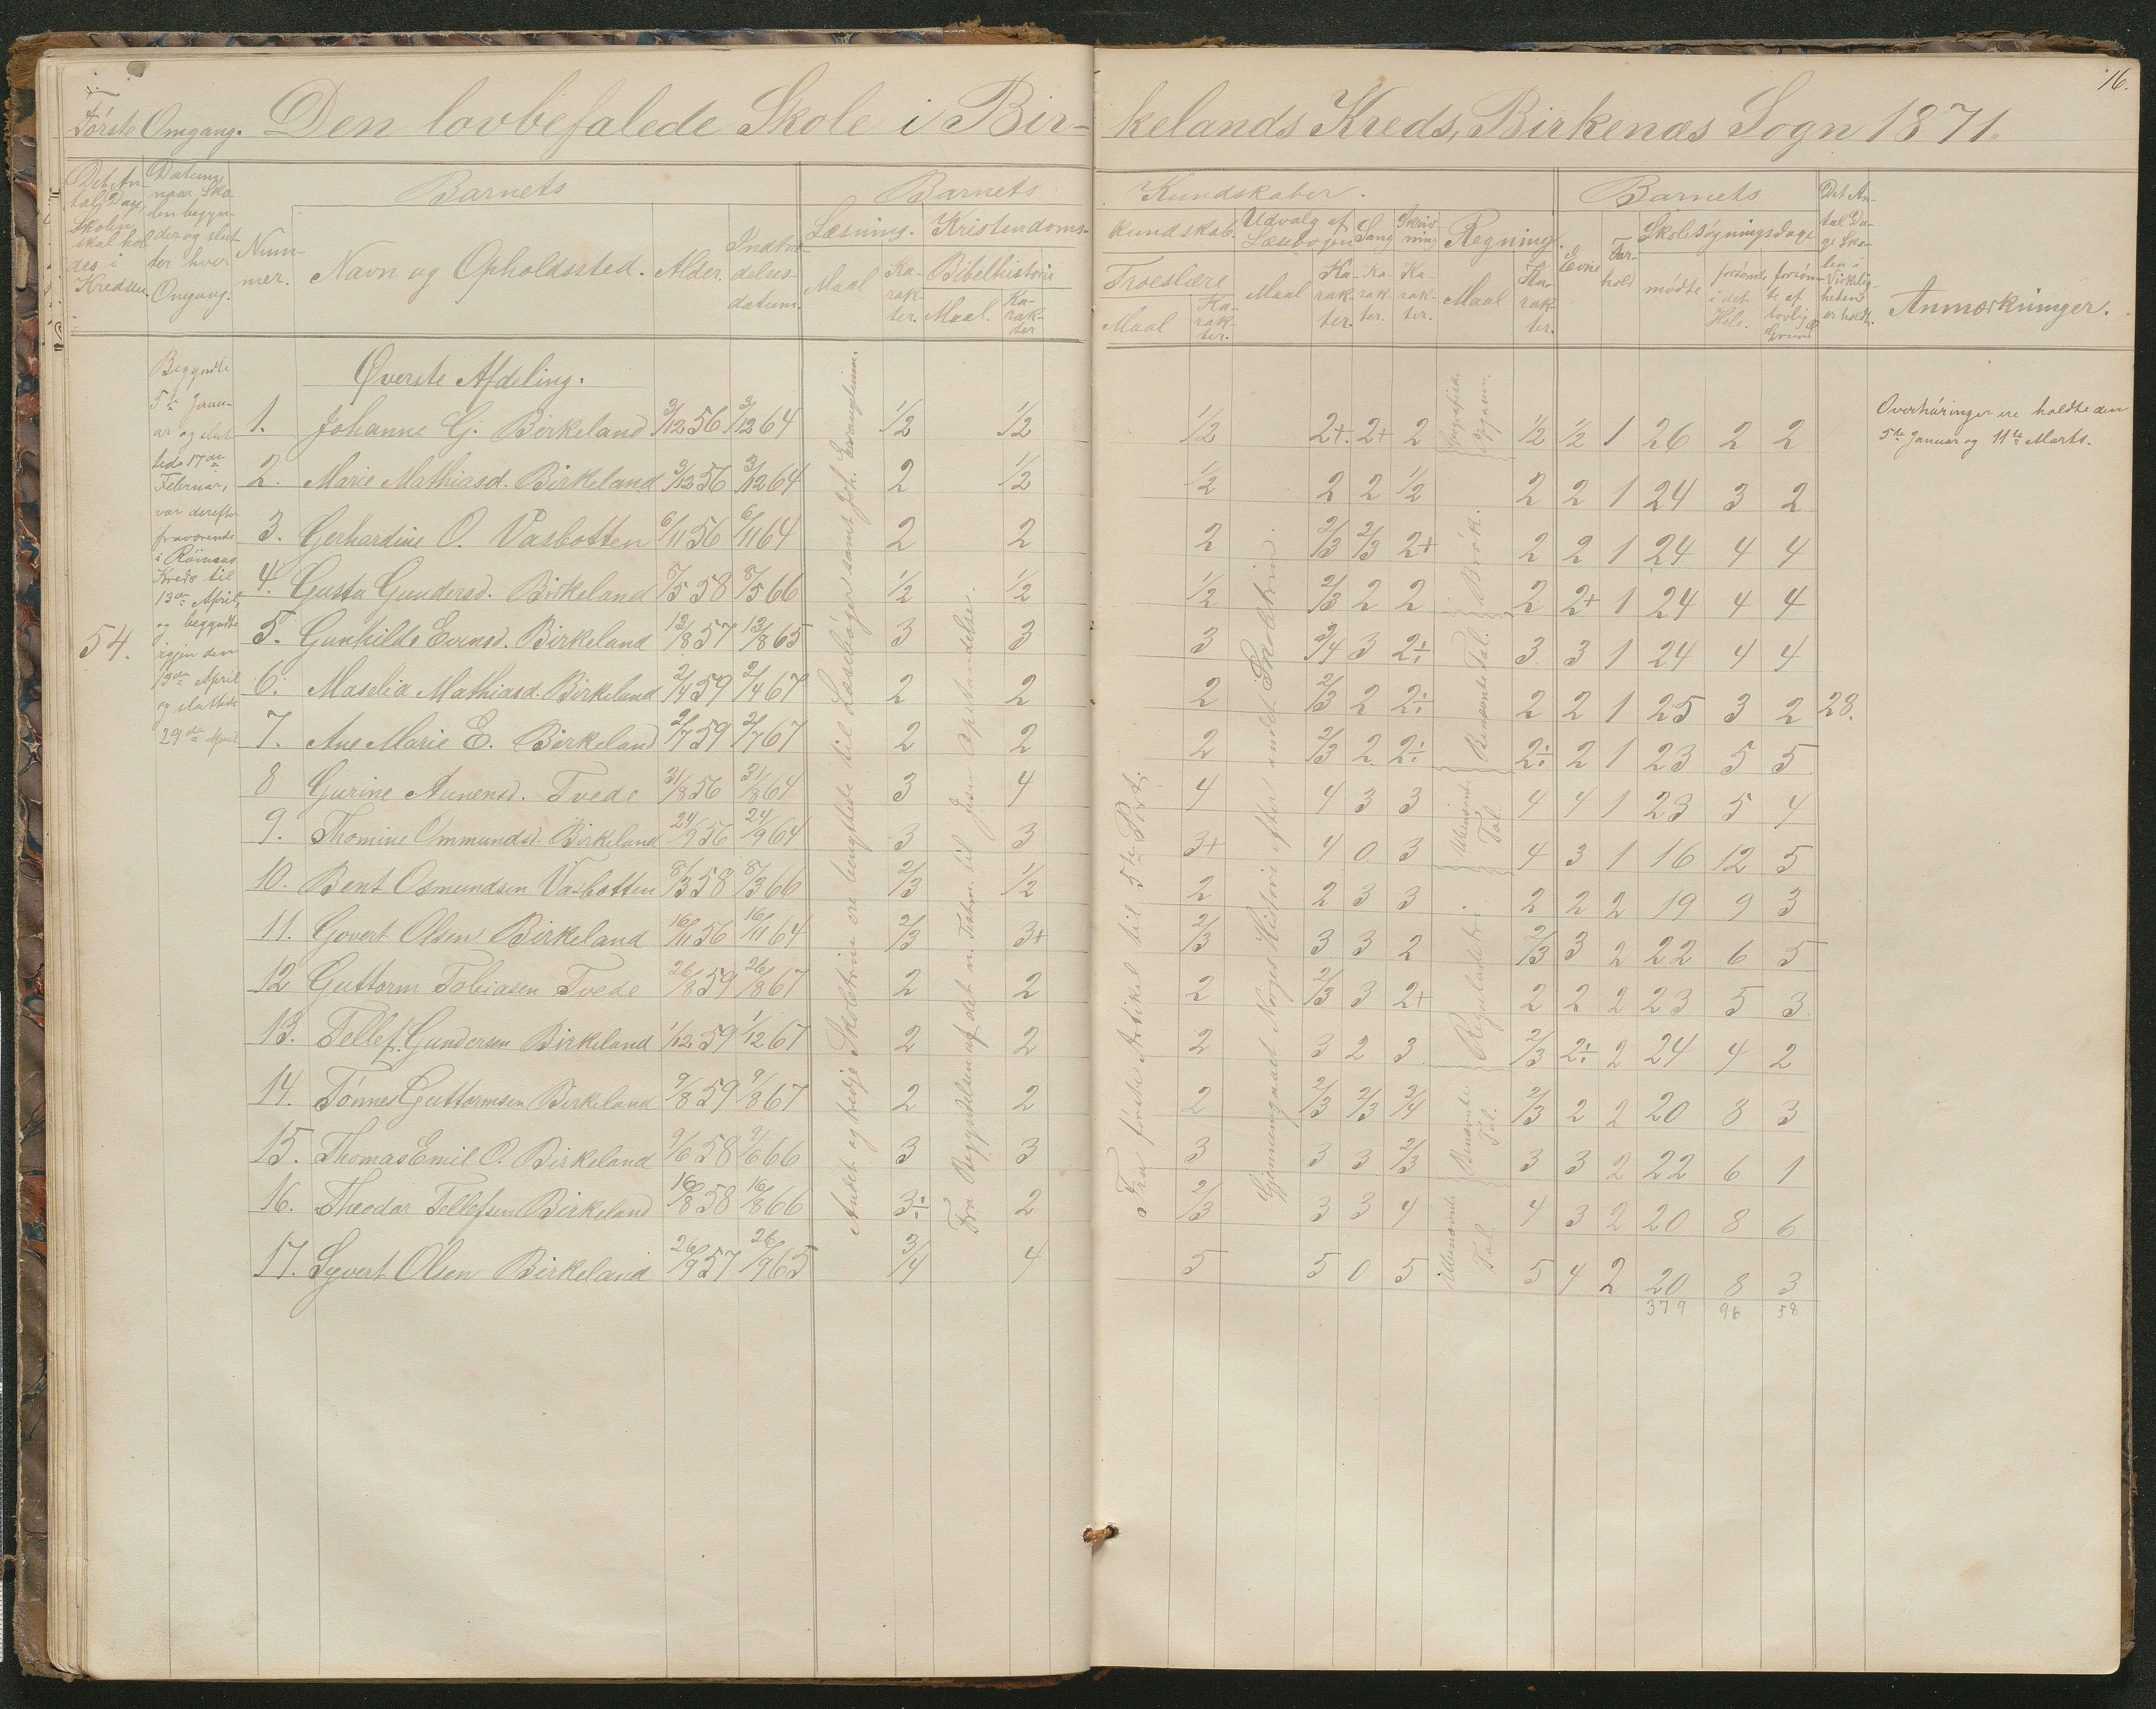 16.
Første Omgang. Den lovbefalede Skole i Bir-
kelands Kreds, Birkenæs Sogn 1871.
Det An-
tal Dage,
Skolen
skal hol-
des i
Kredsen.
Datum,
naar Sko-
len begyn-
der og slut-
ter hver
Omgang.
Num-
mer.
Barnets
Navn og Opholdssted.
Alder.
Indtræ-
delses-
datum.
Barnets
Læsning.
Maal
Ka-
rak-
ter.
Kristendoms-
Bibelhistorie
Maal.
Ka-
rak-
ter
Kundskaber.
kundskab.
Troeslære
Maal
Ka-
rak-
ter.
Udvalg af
Læsebogen
Maal
Ka-
rak-
ter.
Sang
Ka-
rak-
ter.
Skriv-
ning
Ka-
rak-
ter.
Regning.
Maal
Ka-
rak-
ter.
Barnets
Evne
For-
hold
Skolesøgningsdage
mødte
forsømte
i det
Hele.
forsøm-
te af
lovlig
Grund
Det An-
tal Da-
ge Sko-
len i
Virkelig-
heden
er holdt.
Anmærkninger.
54.
Begyndte
5te Janu-
ar og slut-
tede 17de
Februar,
var derefter
fraværende
i
Kreds til
13de April,
og begyndte
igjen den
13de April
og sluttede
29de April
Øverste Afdeling.
1. Johanne G. Birkeland 3/12 56 3/12 64 1/2 1/2 1/2 2+. 2+ 2 1/2 1/2 1 26 2 2
2. Marie Mathiasd. Birkeland 3/12 56 3/12 64 2 1/2 1/2 2 2 1/2 2 2 1 24 3 2
3. Gerhardine O. Vasbotten 6/11 56 6/11 64 2 2 2 2/3 2/3 2+ 2 2 1 24 4 4
4. Gusta Gundersd. Birkeland 8/5 58 8/5 66 1/2 1/2 1/2 2/3 2 2 2 2+ 1 24 4 4
5. Gunhilde Evensd. Birkeland 12/8 57 12/8 65 3 3 3 3/4 3 2÷ 3 3 1 24 4 4
6. Maselia Mathiasd. Birkeland 2/4 59 2/4 67 2 2 2 2/3 2 2÷ 2 2 1 25 3 2 28.
7. Ane Marie E. Birkeland 2/7 59 2/7 67 2 2 2 2/3 2 2÷ 2÷ 2 1 23 5 5
8 Gurine Aanensd. Tvede 31/8 56 31/8 64 3 4 4 4 3 3 4 4 1 23 5 4
9. Thomine Ommundsd. Birkeland 24/9 56 24/9 64 3 3 3+ 4 0 3 4 3 1 16 12 5
10. Bent Osmundsen Vasbotten 8/3 58 8/3 66 2/3 1/2 2 2 3 3 2 2 2 19 9 3
11. Govert Olsen Birkeland 16/11 56 16/11 64 2/3 3+ 2/3 3 3 2 2/3 3 2 22 6 5
12 Guttorm Tobiasen Tvede 26/8 59 26/8 67 2 2 2 2/3 3 2+ 2 2 2 23 5 3
13. Tellef Gundersen Birkeland 1/12 59 1/12 67 2 2 2 3 2 3 2/3 2÷ 2 24 4 2
14. Tønnes Guttormsen Birkeland 9/8 59 9/8 67 2 2 2 2/3 2/3 3/4 2/3 2 2 20 8 3
15. Thomas Emil O. Birkeland 9/6 58 9/6 66 3 3 3 3 3 2/3 3 3 2 22 6 1
16. Theodor Tellefsen Birkeland 16/8 58 16/8 66 3÷ 2 2/3 3 3 4 4 3 2 20 8 6
17. Syvert Olsen Birkeland 26/9 57 26/9 65 3/4 4 5 5 0 5 5 4 2 20 8 3
379 96 58
Andet og tredje Skoletrin ere benyttede til Læsebøger samt Joh. Evangelium.
Fra Begyndelsen af det n. Testm. til Jesu Opstandelse.
Fra første Artikel til 5te Part.
Gjennemgaaet Norges Historie efter andet Skoletrin.
Brøk.
Benævnte Tal.
Ubenævnte
Tal.
Reguladetri.
Benævnte
Tal.
Ubenævnte
Tal.
Overhøringer ere holdte den
5te Januar og 11te Marts.